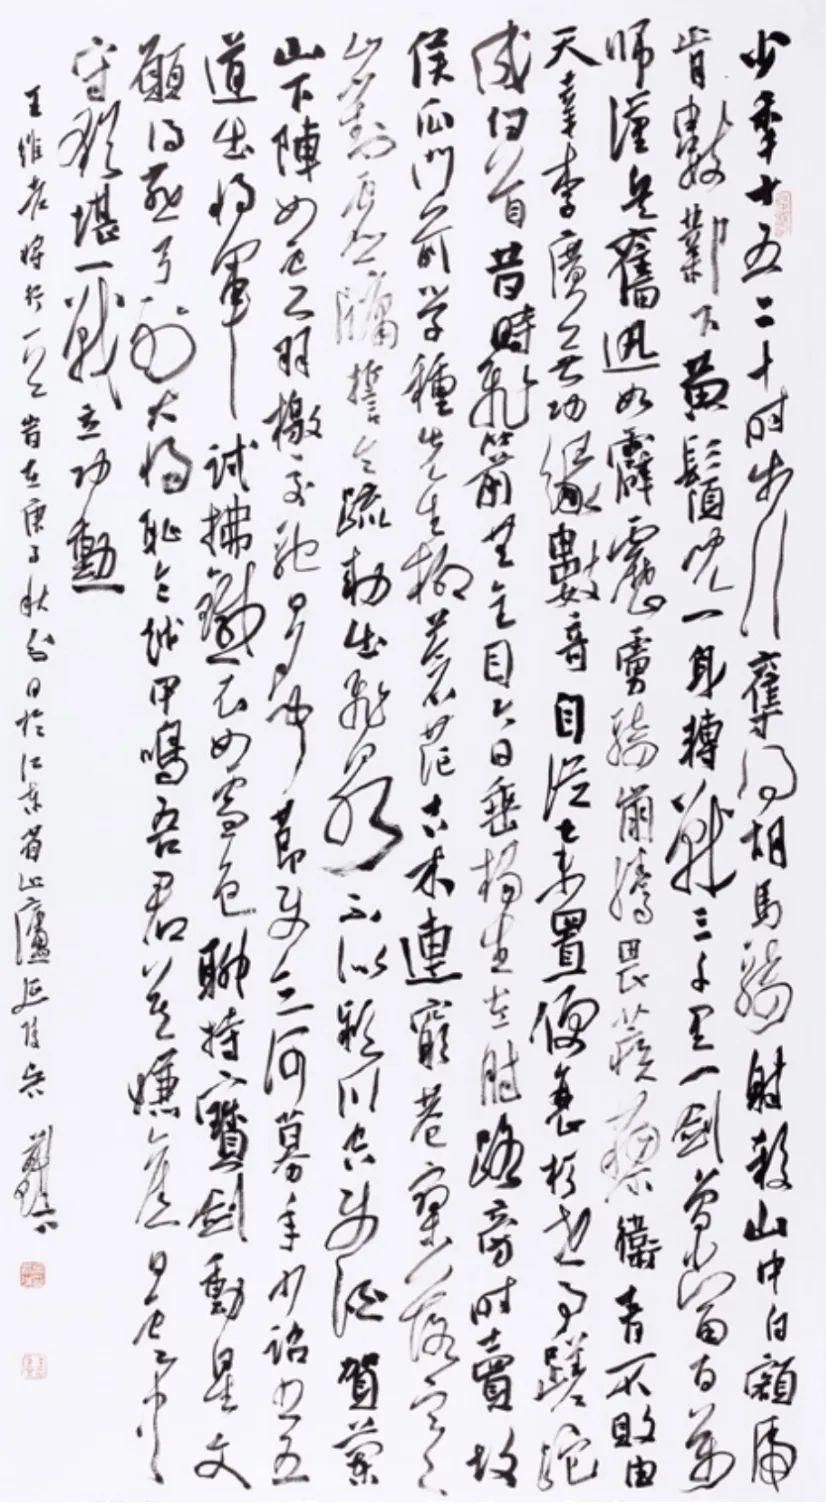 少年十五二十時步行奪得胡馬騎射殺山中白額虎
肯數鄴下黃鬚兒一身轉戰三千里一劍曾當百萬
師漢兵奮迅如霹靂虜騎崩騰畏蒺藜衛青不敗由
天幸李廣無功緣數奇自從棄置便衰朽世事蹉跎
成白首昔時飛箭無全目今日垂楊生左肘路旁時賣故
侯瓜門前學種先生柳蒼茫古木連窮巷寥落寒
山對虛牖誓令疏勒出飛泉不似潁川空使酒賀蘭
山下陣如雲羽檄交馳日夕聞節使三河募年少詔書五
道出將軍試拂鐵衣如雪色聊持寶劍動星文
願得燕弓射大將恥令越甲鳴吾君莫嫌舊日雲中
守猶堪一戰立功勳
王維老將行一首時在庚子秋分日於江東